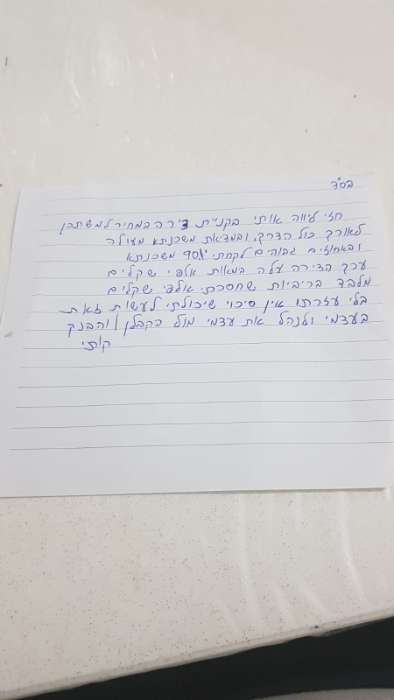 בס"ד
חזי ליווה אותי בקניית דירה במחיר למשתכן
לאורך כול הדרך, ובמציאת משכנתא מעולה
ובאחוזים גבוהים לקחתי 90% משכנתא
ערך הדירה עלה במאות אלפי שקלים
מלבד בריביות שחסרתי אלפי שקלים
בלי עזרתו אין סיכוי שיכולתי לעשות זאת
בעצמי ולנהל את עצמי מול הקבלן והבנק
קותי